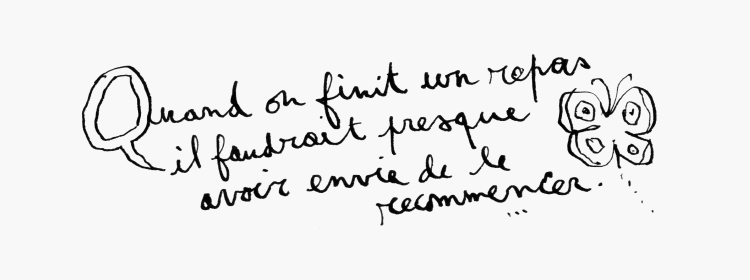 Quand on finit un repas
il faudrait presque
avoir envie de le
recommencer.